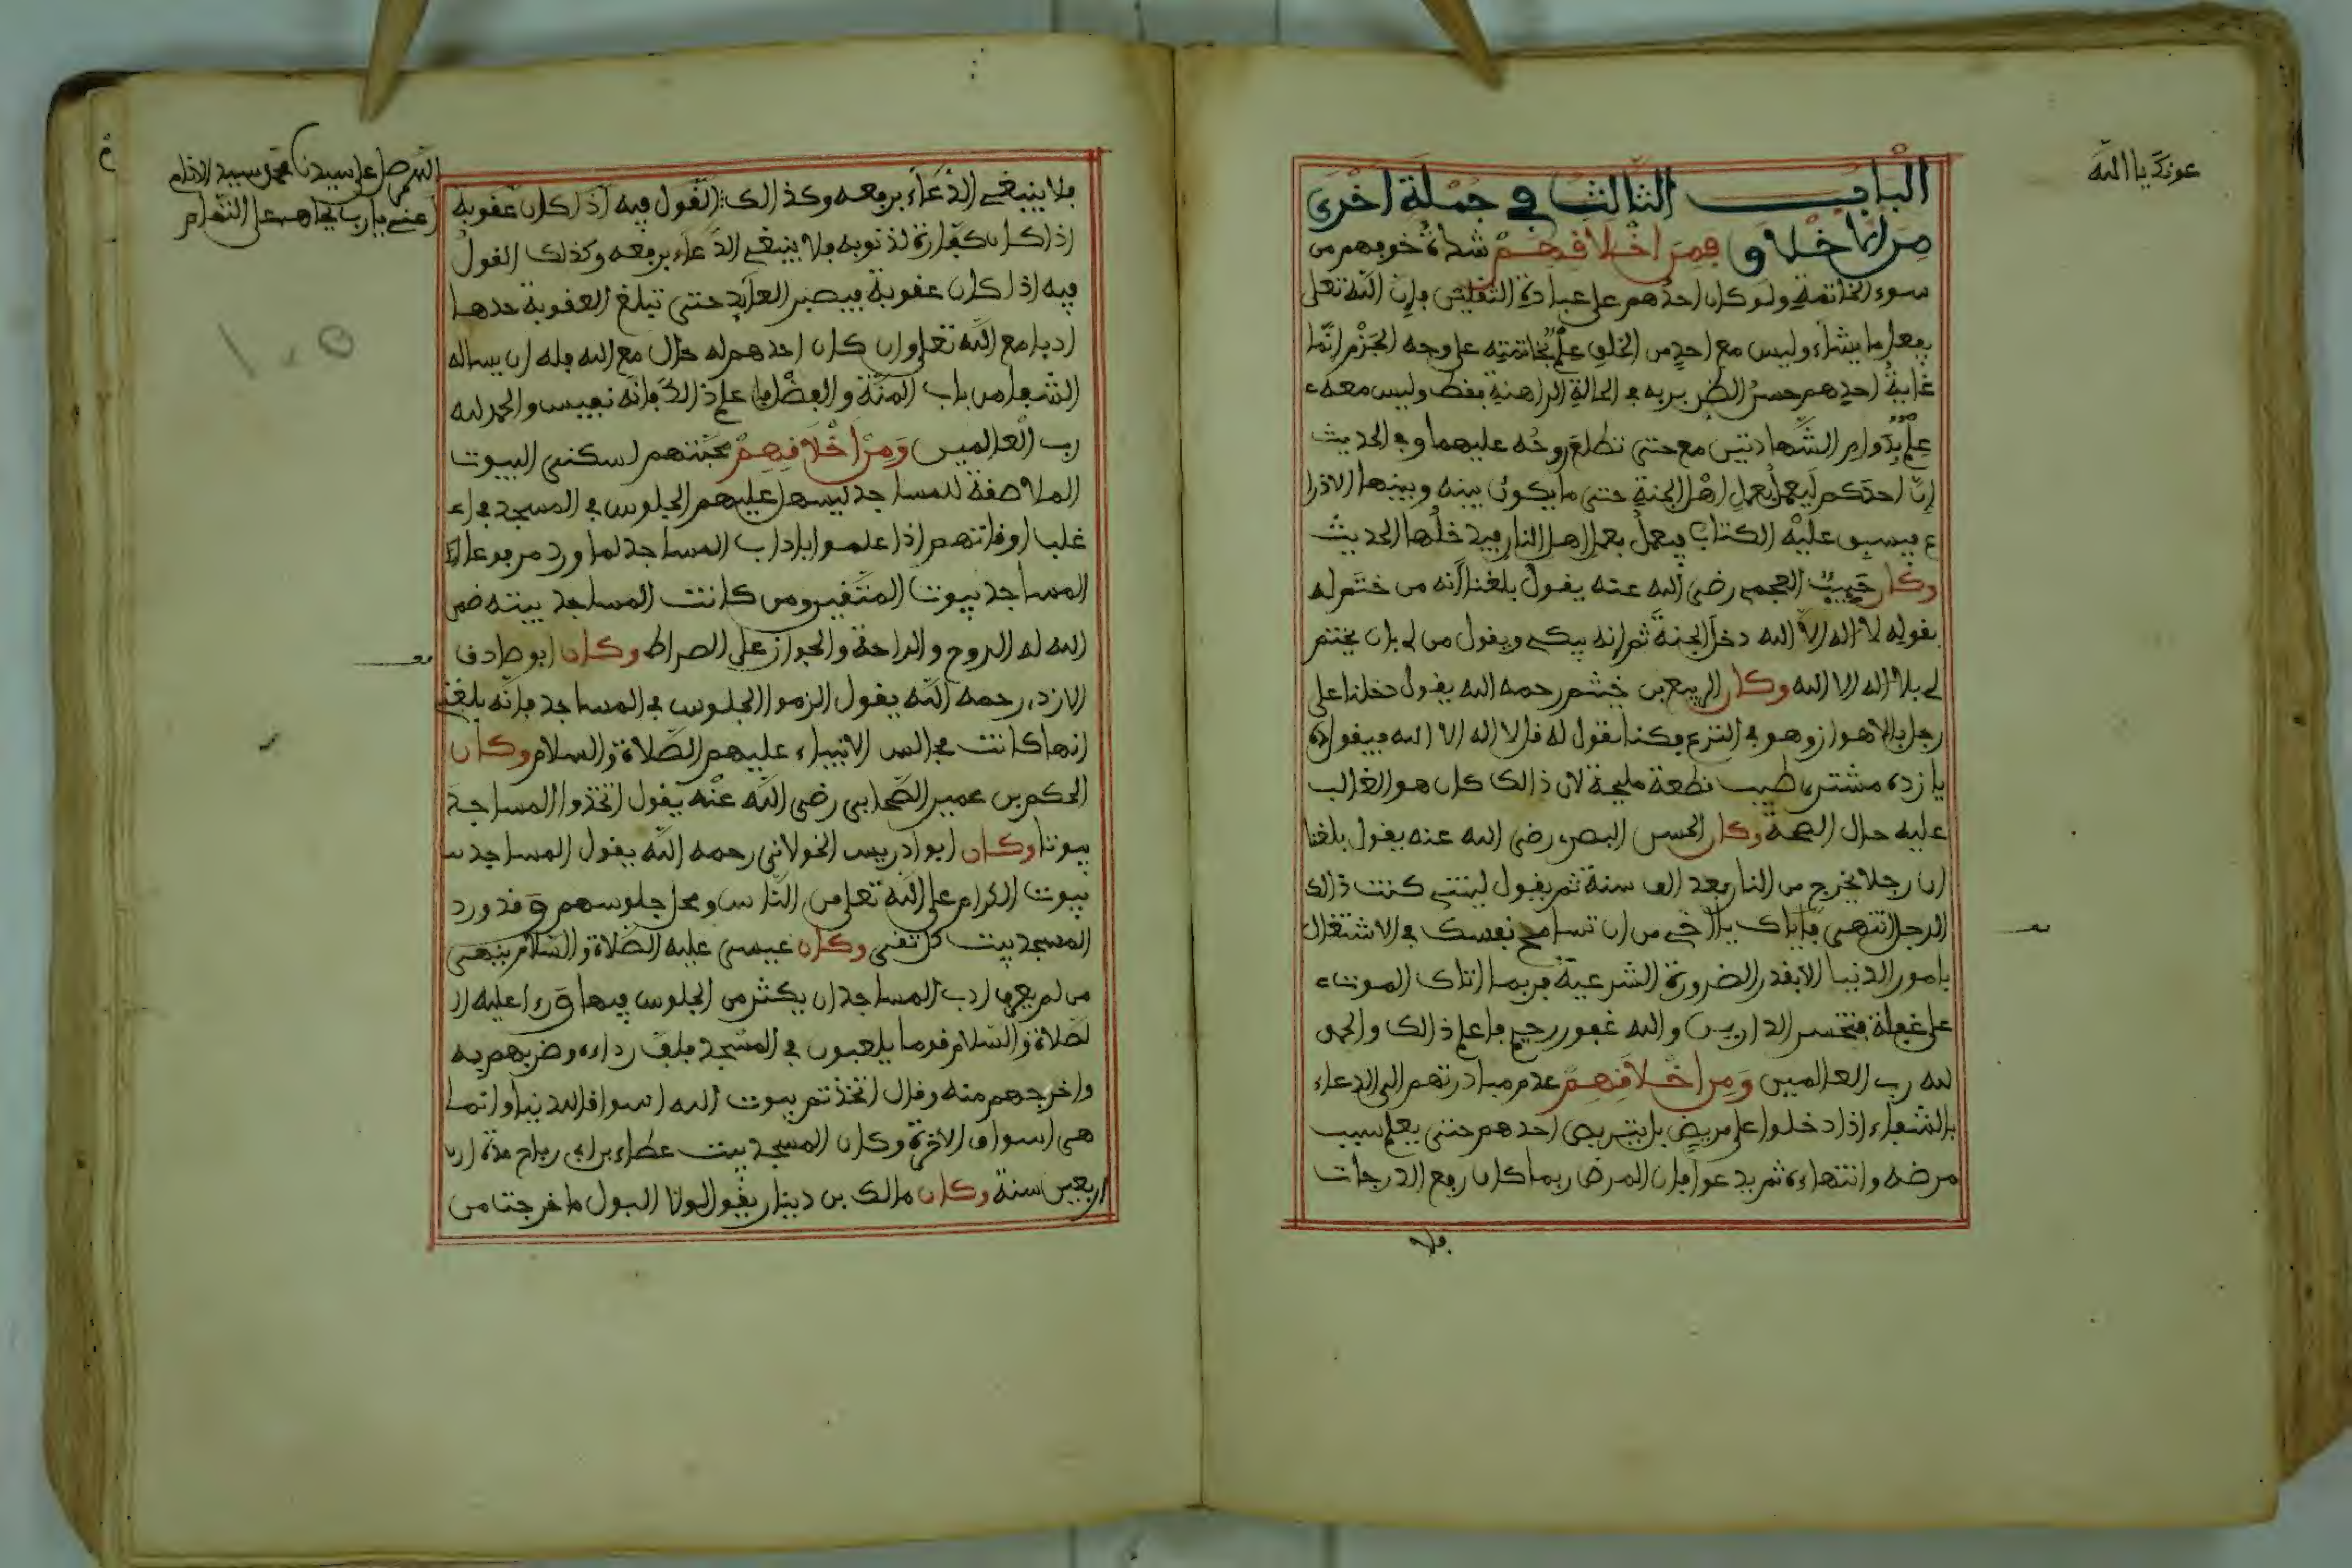 عونك يا الله
الباب الثالث في جملة أخرى
من الأخلاق فمن أخلاقهم شدة خوفهم من
سوء الخاتمة ولو كان احدهم على عبادة الثقلين فإن الله تعلى
يفعل ما يشاء وليس مع احد من الخلق علم بخاتمته على وجه الجزم انما
غاية احدهم حسن الظن بربه في الحالة الراهنة فقط وليس معه
علم بدوام الشهادتين مع حتى تطلع روحه عليهما وفي الحديث
إن احدكم ليعمل بعمل اهل الجنة حتى ما يكون بينه وبينها الا ذرا
ع فيسبق عليه الكتاب فيعمل بعمل اهل النار فيدخلها الحديث
وكان حبيب العجمي رضي الله عنه يقول بلغنا أنه من ختم له
بقوله لا اله إلا الله دخل الجنة ثم إنه يبكي ويقول من لي بان يختم
لي بلا اله الا الله وكان الربيع بن خثيم رحمه الله يقول دخلنا على
رجل بالاهواز وهو في النزع فكنا نقول له قل لا اله الا الله فيقول ده
يازده مشتري طيب نطعة مليحة لان ذالك كان هو الغالب
عليه حال الصحة وكان الحسن البصري رضي الله عنه يقول بلغنا
ان رجلا يخرج من النار بعد الف سنة ثم يقول ليتني كنت ذالك
الرجل انتهى فإياك يا أخي من ان تسامح نفسك في الاشتغال
بامور الدنيا الا بقدر الضرورة الشرعية فربما اتاك الموت
على غفلة فتخسر الدارين والله غفور رحيم فاعلم ذالك والحمد
لله رب العالمين ومن أخلاقهم عدم مبادرتهم الى الدعاء
بالشفاء اذا دخلوا على مريض بل يتربص احدهم حتى يعلم سبب
مرضه وانتهاءه ثم يدعوا فإن المرض ربما كان رفع الدرجات
فلا
اللهم صل على سيدنا محمد سيد الانام
أعني يا رب بجاهه على التمام
فلا ينبغي الدعاء برفعه وكذالك القول فيه اذا كان عقوبة
اذا كان كفارة لذنوبه فلا ينبغي الدعاء برفعه وكذلك القول
فيه اذا كان عقوبة فيصبر العابد حتى تبلغ العقوبة حدها
ادبا مع الله تعلى وان كان احدهم له حال مع الله فله ان يساله
الشفا من باب المنة والفضل فاعلم ذالك فإنه نفيس والحمد لله
رب العالمين ومن أخلاقهم محبتهم لسكنى البيوت
الملاصقة للمساجد ليسهل عليهم الجلوس في المسجد في ا
غلب اوقاتهم اذا علموا باداب المساجد لما ورد مرفوعا
المساجد بيوت المتقين ومن كانت المساجد بيته ضمن
الله له الروح والراحة والجواز على الصراط وكان ابو صادف
الازدي رحمه الله يقول الزموا الجلوس في المساجد فإنه بلغني
انها كانت مجالس الانبياء عليهم الصلاة والسلام وكان
الحكم بن عمير الصحابي رضي الله عنه يقول اتخذوا المساجد
بيوتا وكان ابو ادريس الخولاني رحمه الله يقول المساجد
بيوت الكرام على الله تعلى من الناس ومحل جلوسهم وقد ورد
المسجد بيت كل تقي وكان عيسى عليه الصلاة والسلام ينهى
من لم يعرف ادب المساجد ان يكثر من الجلوس فيها ورءا عليه ال
لصلاة والسلام قوما يلعبون في المسجد فلف رداءه وضربهم به
واخرجهم منه وقال اتخذتم بيوت الله اسواقا للدنيا وانما
هي اسواق الاخرة وكان المسجد بيت عطاء بن ابي رباح مدة
اربعين سنة وكان مالك بن دينار يقول لولا البول ما خرجت من